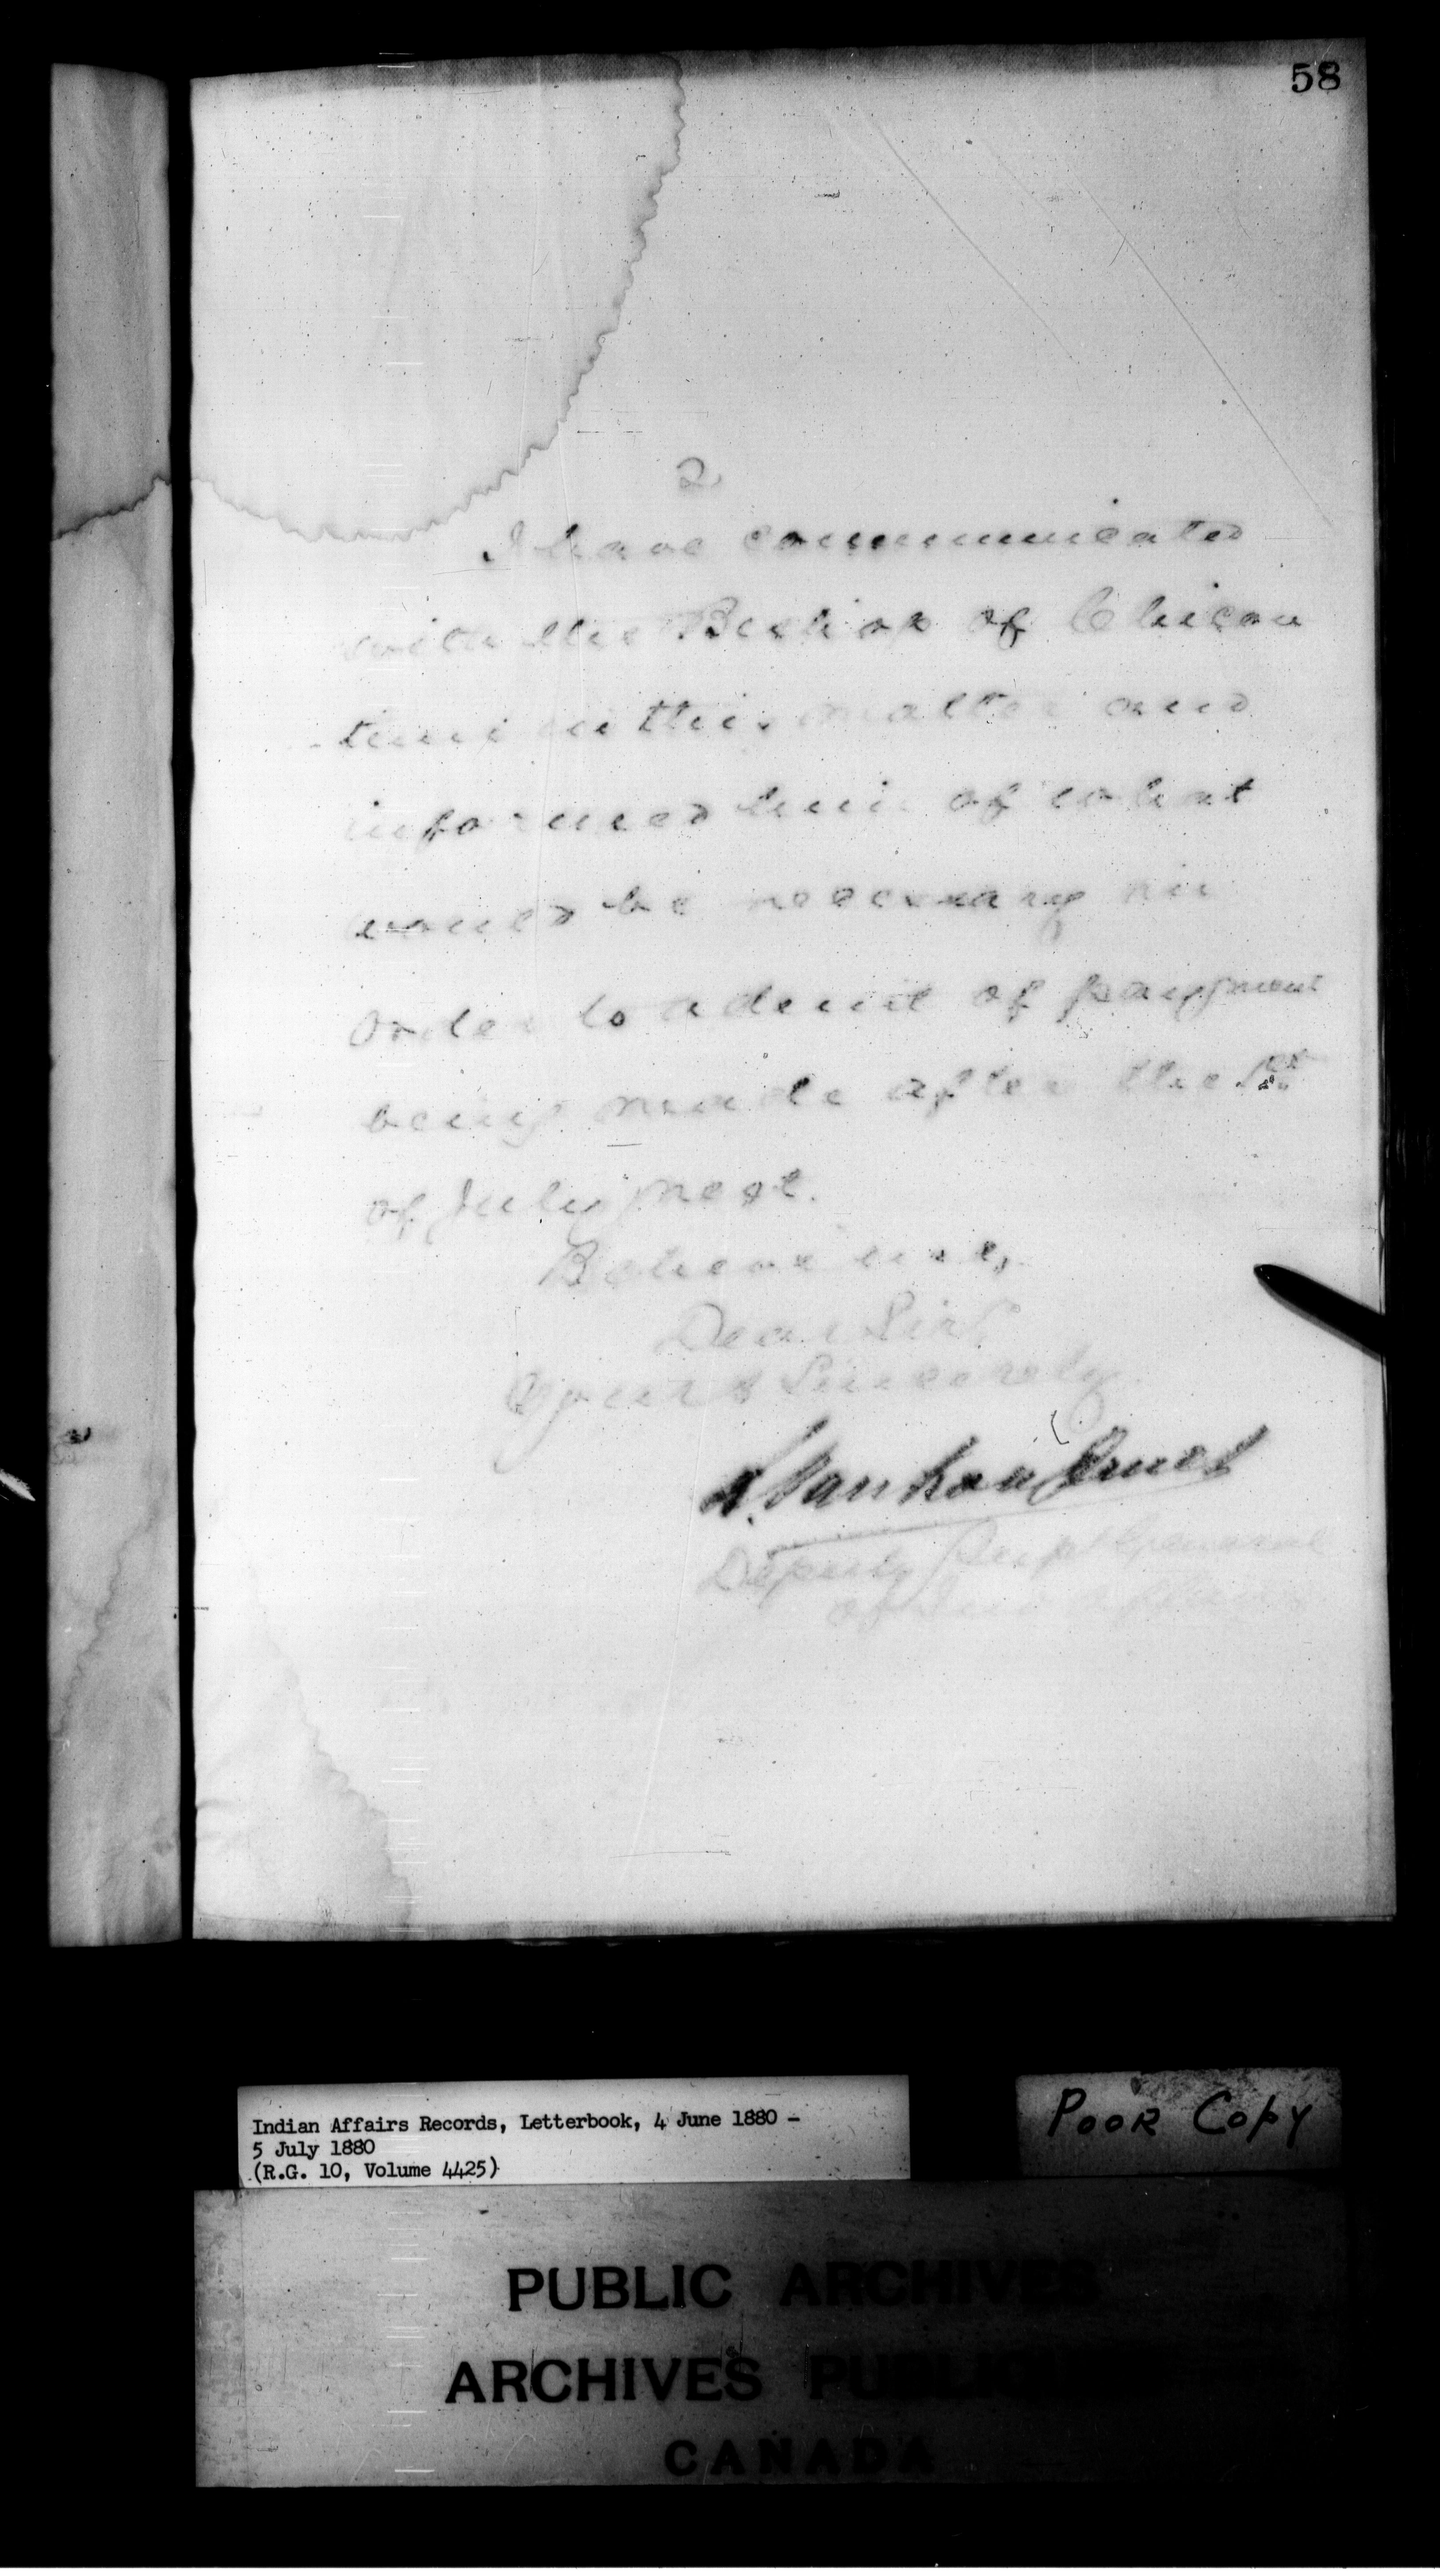 58
2
I have communicated
with the Bishop of Chicou
timi in this matter and
informed him of what
would be necessary in
order to admit of payment
being made after the 1st
of July next.
Believe me,
Dear Sir,
Yours Sincerely
L. Vankoughnet
Deputy Supt General
of Ind. Affairs
Indian Affairs Records, Letterbook, 4 June 1880 –
5 July 1880
(R.G. 10, Volume 4425)
POOR COPY
PUBLIC ARCHIVES
ARCHIVES PUBLIQUES
CANADA